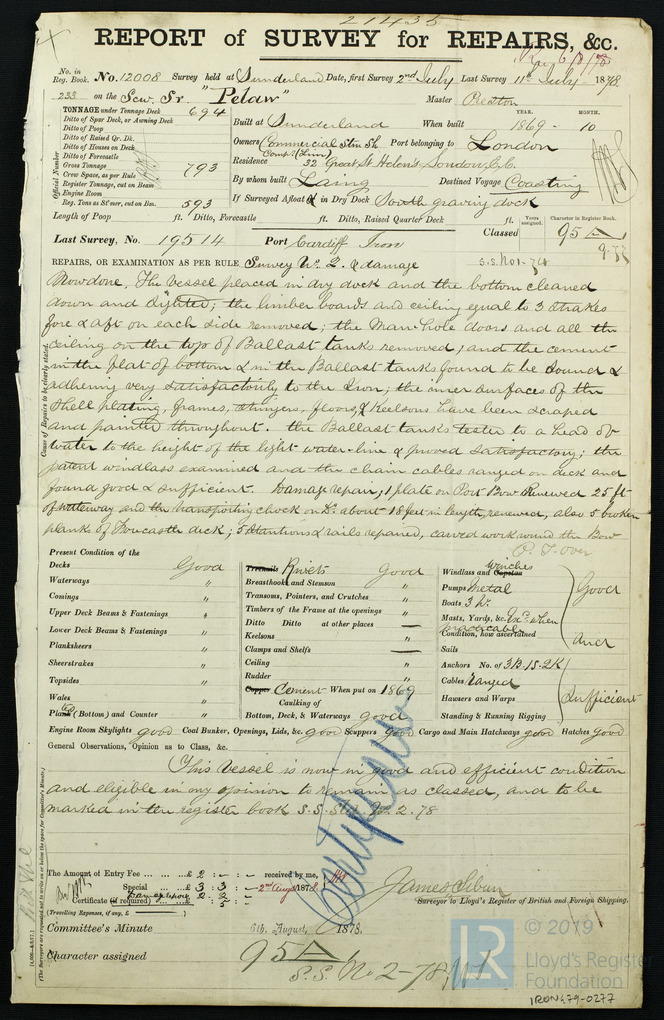 21435
REPORT of SURVEY for REPAIRS, &c.
No. in Reg. Book. No. 12008 Survey held at Sunderland Date, first Survey 2nd July Last Survey 11th July 1878
233 on the Scw. Sr. "Pelaw" Master Preston
TONNAGE under Tonnage Deck 694
Ditto of Spar Deck, or Awning Deck
Ditto of Poop
Ditto of Raised Qr. Dk.
Ditto of Houses on Deck
Ditto of Forecastle
Gross Tonnage 793
Crew Space, as per Rule
Register Tonnage, cut on Beam
Engine Room
Reg. Tons as St'mer, cut on Bm. 593
Official Number
YEAR. MONTH.
Built at Sunderland When built 1869 - 10
Owners Commercial Stm Sh Comp. (Lim) Port belonging to London
Residence 32 Great St Helen's London E.C.
By whom built Laing Destined Voyage Coasting
If Surveyed Afloat or in Dry Dock South graving dock
Length of Poop ft. Ditto, Forecastle ft. Ditto, Raised Quarter Deck ft.
Years assigned. Character in Register Book.
Last Survey, No. 19514 Port Cardiff Iron Classed 95 A
9.77
REPAIRS, OR EXAMINATION AS PER RULE, Survey No. 2. & damage
S.S. No 1-74
Now done, The vessel placed in dry dock and the bottom cleaned
down and sighted; the limber boards and ceiling equal to 3 strakes
fore & aft on each side removed; the man-hole doors and all the
ceiling on the top of Ballast tanks removed, and the cement
in the flat of bottom & in the Ballast tanks found to be sound &
adhering very satisfactorily to the Iron; the inner surfaces of the
Shell plating, frames, stringers, floors, & Keelsons have been scraped
and painted throughout. the Ballast tanks tested to a head of
water to the height of the light water-line & proved satisfactory; the
patent windlass examined and the chain cables ranged on deck and
found good & sufficient. Damage repair, 1 plate on Port Bow Renewed 25 ft
of waterway and the transporting chock on Do about 18 feet in length, renewed, also 5 broken
planks of Forecastle deck; 5 stantions & rails repaired, carved work round the Bow
P. T. over
Cause of Repairs to be clearly stated.
Present Condition of the
Decks Good
Waterways "
Comings "
Upper Deck Beams & Fastenings "
Lower Deck Beams & Fastenings "
Planksheers "
Sheerstrakes "
Topsides "
Wales "
Plates (Bottom) and Counter "
Treenails Rivets Good
Breasthooks and Stemson "
Transoms, Pointers, and Crutches "
Timbers of the Frame at the openings "
Ditto Ditto at other places
Keelsons "
Clamps and Shelfs
Ceiling "
Rudder "
Copper Cement When put on 1869
Caulking of
Bottom, Deck, & Waterways good
Windlass and Capstan winches
Pumps Metal
Boats 3 Do.
Masts, Yards, &c. Exd. when practicable
Condition, how ascertained
Good
and
Sufficient
Sails
Anchors No. of 3B. 1S. 2K
Cables Ranged
Hawsers and Warps
Standing & Running Rigging
Engine Room Skylights good Coal Bunker, Openings, Lids, &c. good Scuppers Good Cargo and Main Hatchways good Hatches Good
General Observations, Opinion as to Class, &c.
This Vessel is now in good and efficient condition
and eligible in my opinion to remain as classed, and to be
marked in the register book S.S. Std. No. 2. 78
The Amount of Entry Fee ... £ 2 : - : - received by me,
Special ... £ 3 : 3 : - 2nd Augt 1878
Certificate (if required) ... £
(Travelling Expenses, if any, £ )
James Sibun
Surveyor to Lloyd's Register of British and Foreign Shipping.
Committee's Minute 6th August, 1878.
Character assigned 95 A
S.S. No 2-78
© 2019
LR Lloyd's Register
Foundation
IRON479-0277